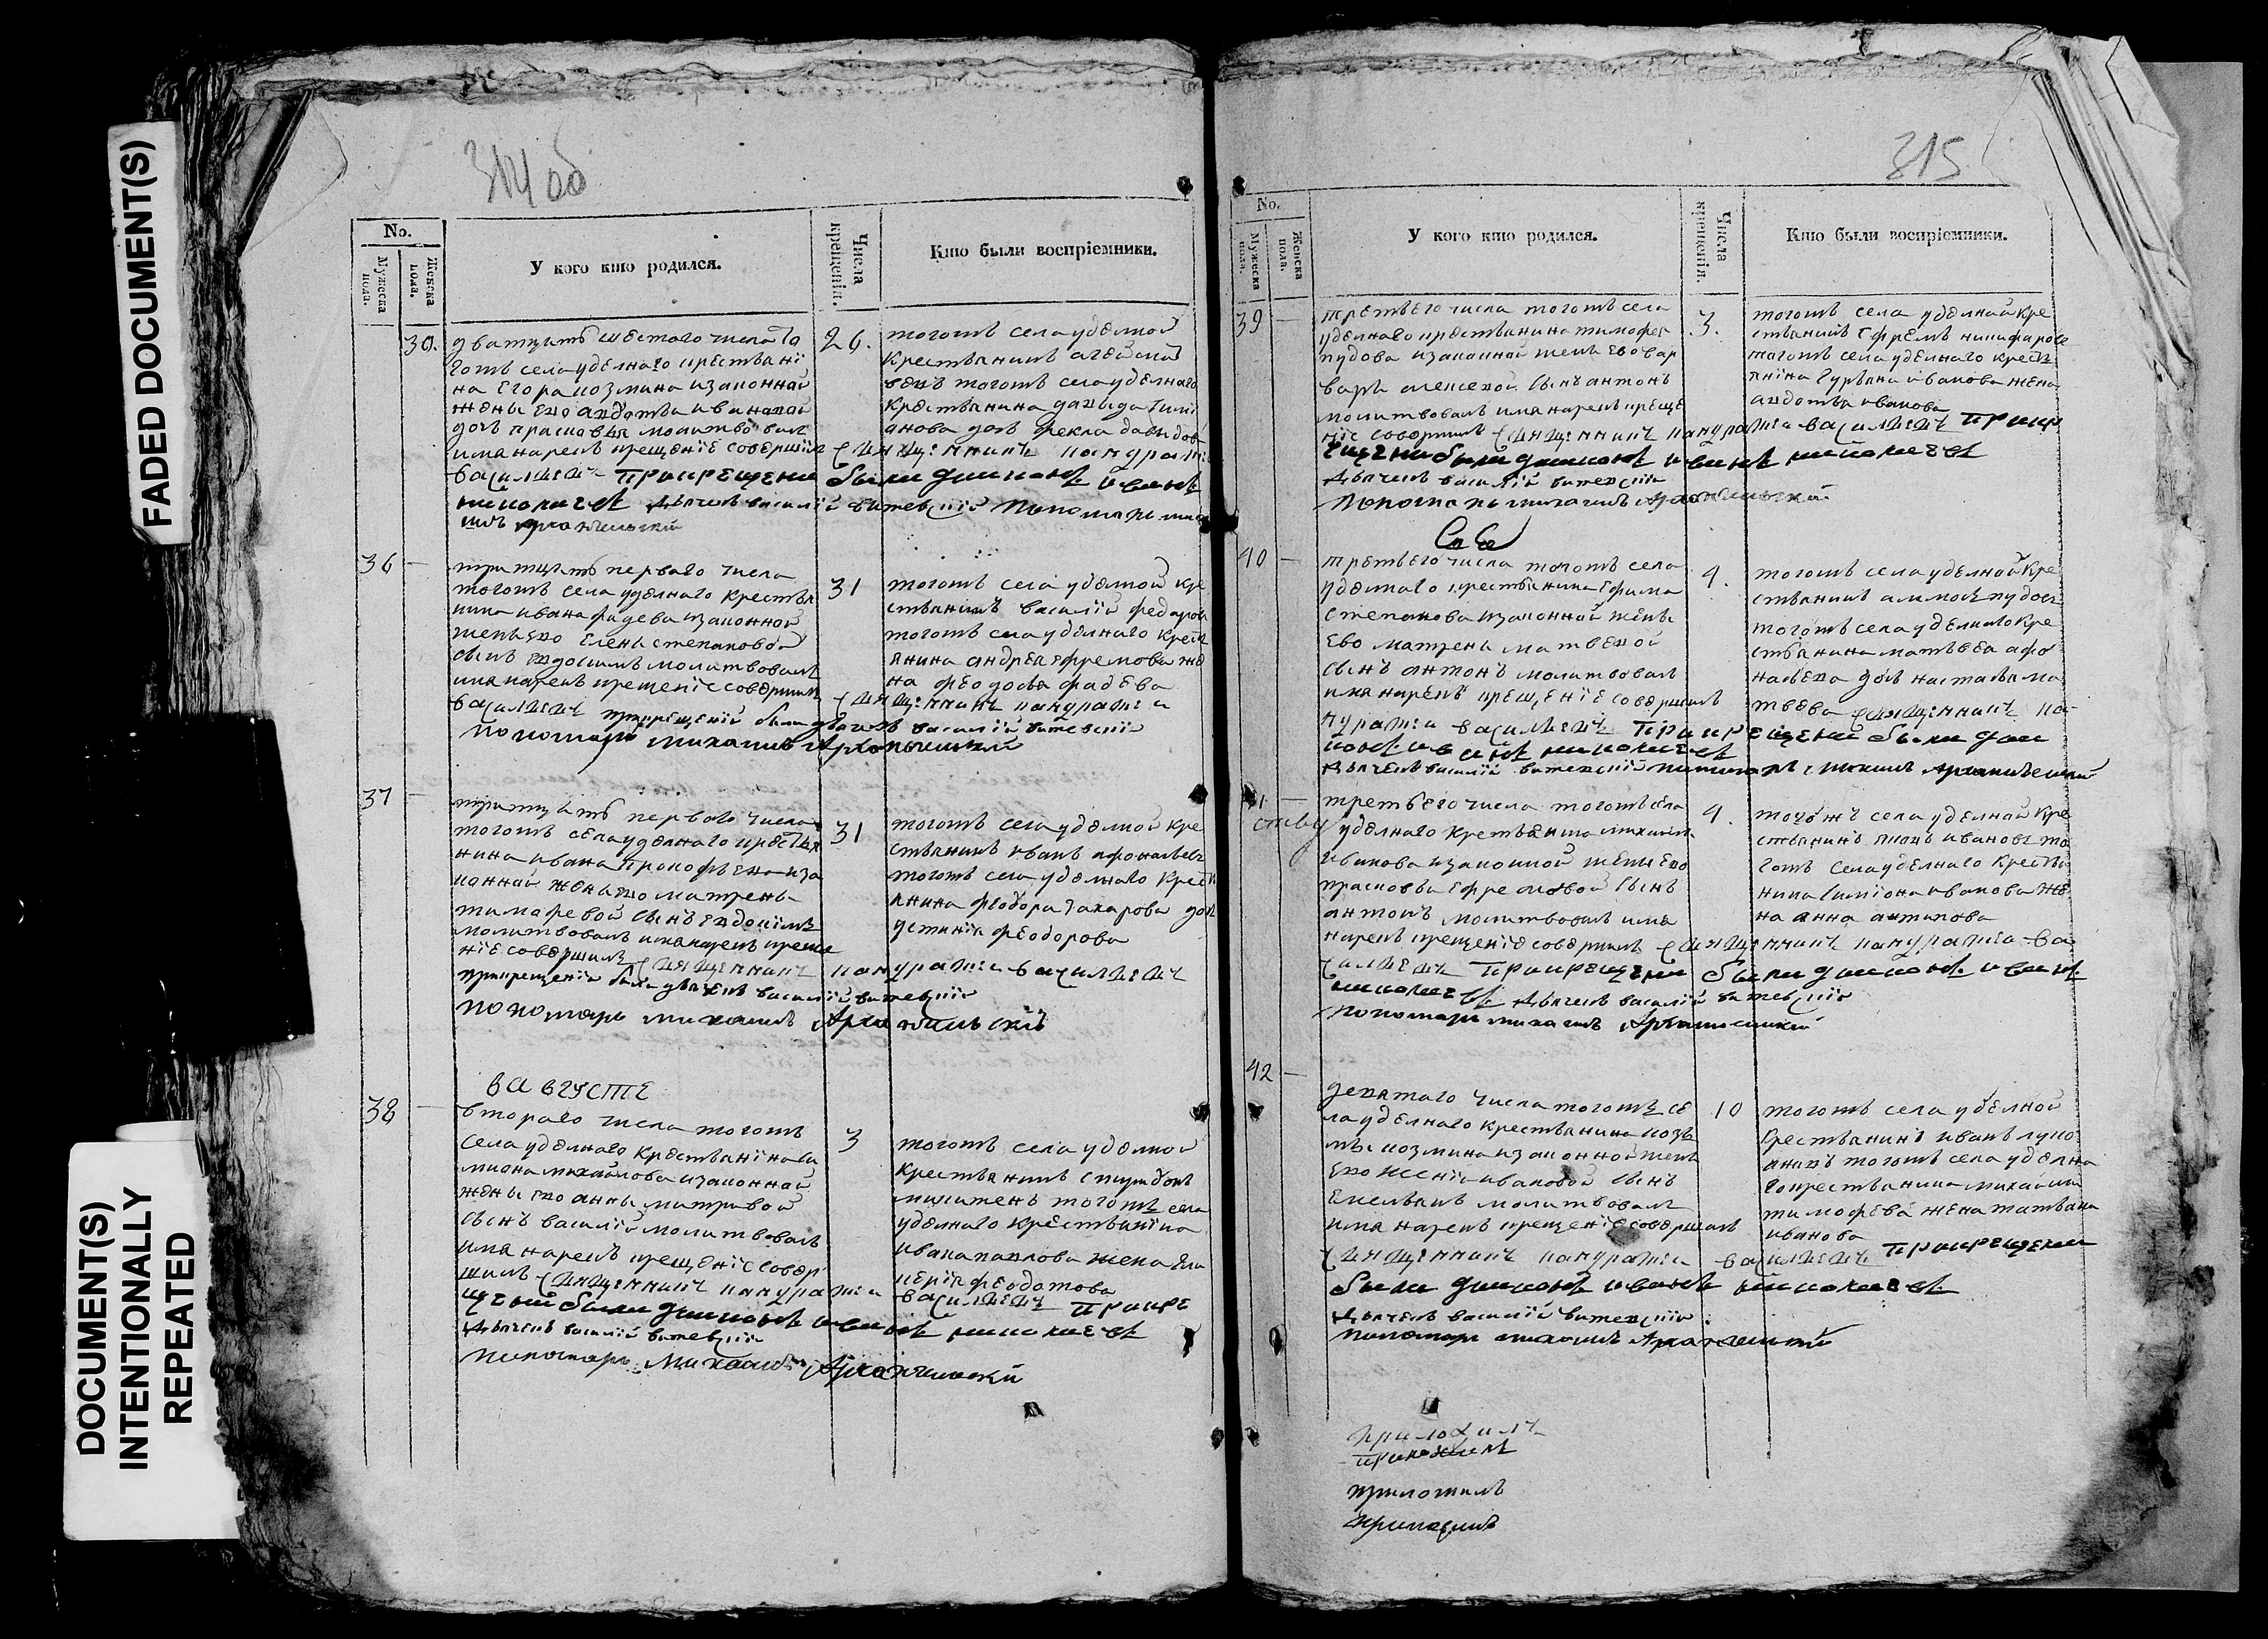 FADED DOCUMENT(S)
DOCUMENT(S)
INTENTIONALLY
REPEATED
314 об
No.
Мужеска пола.
Женска пола.
У кого кто родился.
Числа крещенія.
Кто были воспріемники.
30.
дватцать шестаго числа то
гожъ села уделнаго крестьяни
на Егора козмина изаконнай
жены ево авдотьи ивановой
дочь прасковья молитвовалъ
имя нарекъ крещенïе совершилъ священникъ
васильевъ При крещени были диаконъ иванъ
николаевъ дьячекъ василїй витевскїй Пономарь миха
илъ Архангельскїй
26.
тогожъ села уделной
крестьянинъ
тогожъ села уделнаго
крестьянина давыда
дочь фекла давыдова
36
тритцать перваго числа
тогожъ села уделнаго крестья
нина ивана фадева изаконной
жены ево елены степановой
сынъ евдокимъ молитвовалъ
имя нарекъ крещенïе совершилъ священникъ
васильевъ при крещенїи были дьячекъ василїй витевскїй
пономарь михаилъ Архангельскїй
31
тогожъ села уделной кре
стьянинъ василїй федоровъ
тогожъ села уделнаго кресть
янина андрея ефремова же
на феодосья фадева
37
тритцать перваго числа
тогожъ села уделнаго крестья
нина ивана прокофьева иза
коннай жены ево матрены
тимафевой сынъ евдокимъ
молитвовалъ имя нарекъ креще
нïе совершилъ священникъ васильевъ
при крещенїи были дьячекъ василїй витевскїй
пономарь михаилъ Архангельскїй
31
тогожъ села уделной кре
стьянинъ иванъ афонасьевъ
тогожъ села уделнаго кресть
янина феодора захарова дочь
устинïя феодорова
38
в августе
втораго числа тогожъ
села уделнаго крестьянïна си
миона михайлова изаконнай
жены ево анны митривой
сынъ василïй молитвовалъ
имя нарекъ крещенïе совер
шилъ священникъ васильевъ При кре
щенїи были диаконъ иванъ николаевъ
дьячекъ василїй витевскїй
пономарь михаилъ Архангельскїй
3
тогожъ села уделной
крестьянинъ
никитенъ тогожъ села
уделнаго крестьянïна
ивана павлова жена гли
керïя феодотова
315
No.
Мужеска пола.
Женска пола.
У кого кто родился.
Числа крещенія.
Кто были воспріемники.
39
третьего числа тогожъ села
уделнаго крестьянина тимофея
пудова изаконнай жены ево вар
вары алексевой сынъ антонъ
молитвовалъ имя нарекъ креще
нïе совершилъ священникъ васильевъ При кр
ещени были диаконъ иванъ николаевъ
дьячекъ василїй витевскїй
пономарь михаилъ Архангельскїй
3.
тогожъ села уделнай кре
стьянинъ ефремъ никифаровъ
тогожъ села уделнаго кресть
янïна гурьяна иванова жена
авдотья иванова
40
третьего числа тогожъ села
уделнаго крестьянина ефима
степанова изаконнай жены
ево матрены матвевой
сынъ антонъ молитвовалъ
имя нарекъ крещенïе совершилъ
священникъ васильевъ При крещени были диа
конъ иванъ николаевъ
дьячекъ василїй витевскїй пономарь михаилъ Архангельскїй
4.
тогожъ села уделнай кре
стьянинъ пудовъ
тогожъ села уделнаго кре
стьянина матвева афо
насьева дочь настасья ма
твева
41
третьего числа тогожъ села
уделнаго крестьянина михаила
иванова изаконной жены ево
прасковьи ефремовой сынъ
антонъ молитвовалъ имя
нарекъ крещенïе совершилъ священникъ ва
сильевъ При крещени были диаконъ иванъ
николаевъ дьячекъ василїй витевскїй
пономарь михаилъ Архангельскїй
4.
тогожъ села уделнай кре
стьянинъ яковъ ивановъ то
гожъ села уделнаго крестья
нина симиона иванова же
на анна антипова
42
девятаго числа тогожъ се
ла уделнаго крестьянина козь
мы козмина изаконной жены
ево ксенïи ивановой сынъ
емельянъ молитвовалъ
имя нарекъ крещенïе совершилъ
священникъ васильевъ При крещени
были диаконъ иванъ николаевъ
дьячекъ василїй витевскїй
пономарь михаилъ Архангельскїй
10
тогожъ села уделной
крестьянинъ иванъ луко
яновъ тогожъ села уделна
го крестьянина михаила
тимофева жена татьяна
иванова
приложилъ
приложилъ
приложилъ
приложилъ